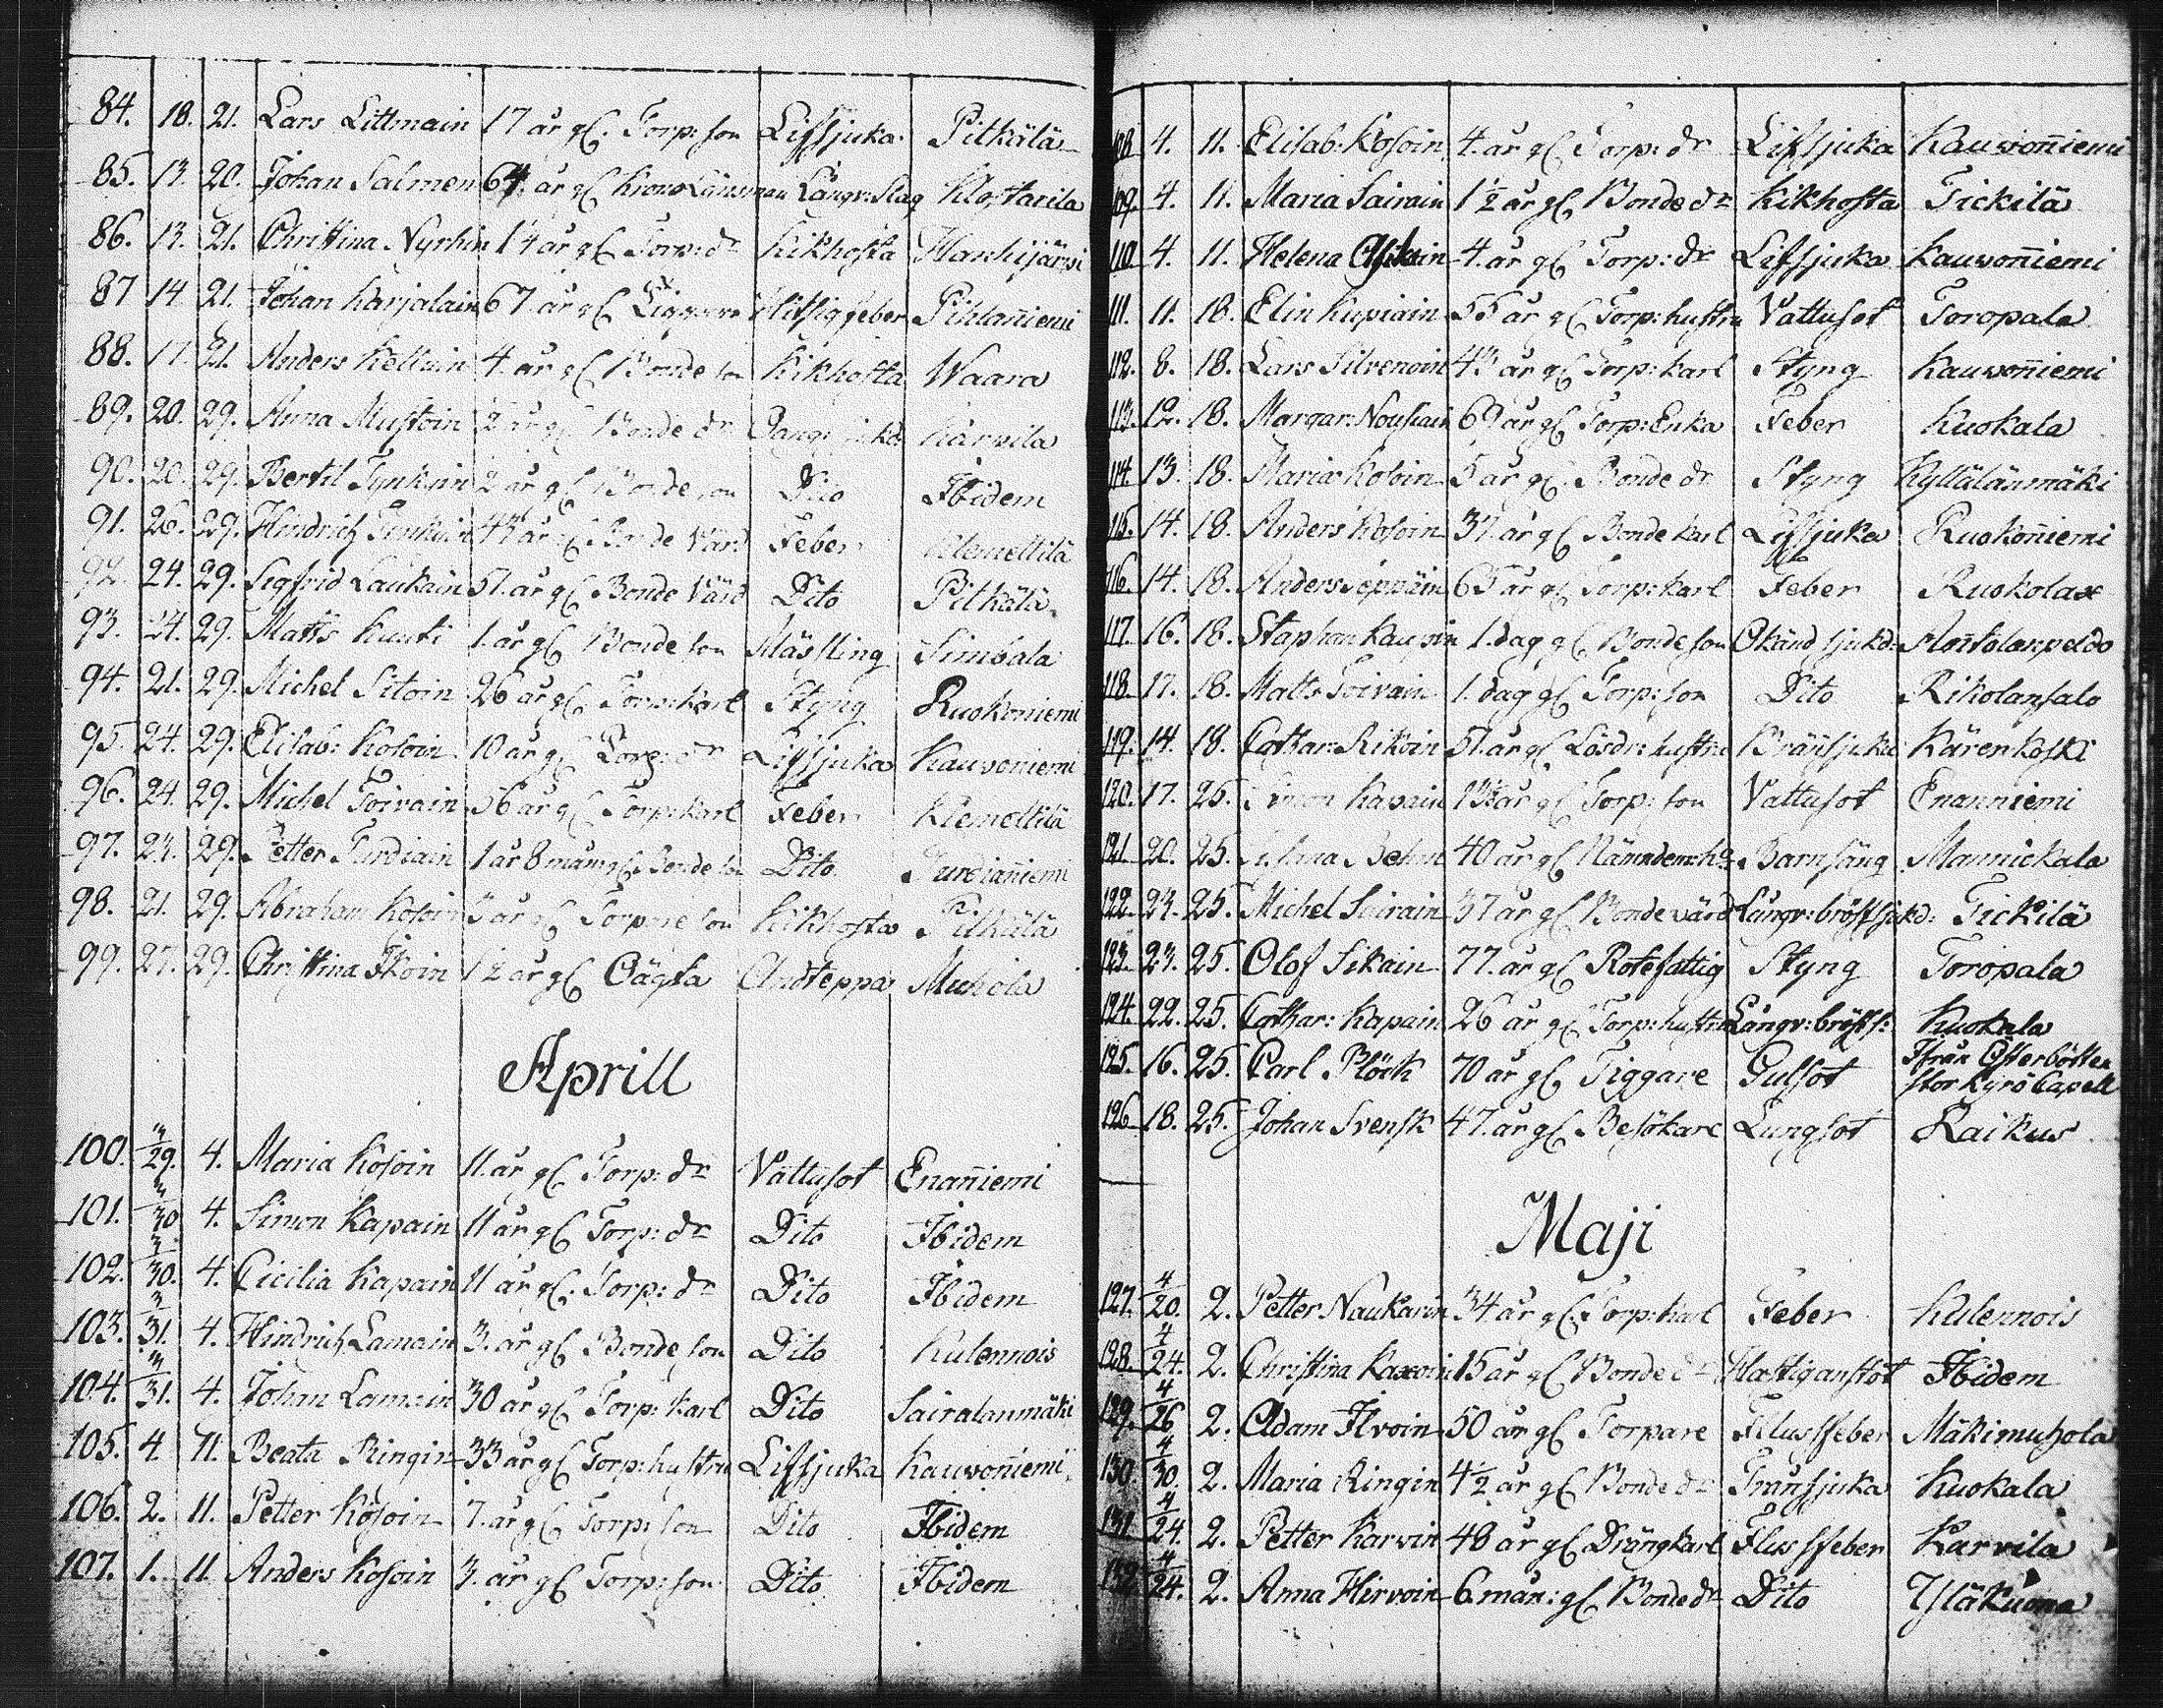 84. 18. 21. Lars Littmain 17 år gl. Torp: son Lifsjuka Pitkälä
85. 13. 20. Johan Salmen 64 år gl Krono Länsman Långv: Slag Klostarila
86. 13. 21. Christina Nyrhin 14 år gl Torp: dr Kikhosta Hanhijärvi
87 14 21. Johan Karjalain 67 år gl Hitsig feber Pihlaniemi
88. 17. 21. Anders Keltain 4 år gl Bonde son Kikhosta Waara
89. 20. 29. Anna Mustoin 2 år gl Bonde dr Karvila
90. 20. 29. Bertil Tynkyin 2 år gl Bonde son Dito Ibidem
91. 26. 29. Hindrich 43 år gl Bonde Värd Feber Klemettilä
92. 24. 29. Sigfrid Laukain 51. år gl Bonde Värd Dito Pitkälä
93. 24. 29. Matts Kuuti 1. år gl Bonde son Mässling Simbala
94. 21. 29. Michel Sitoin 26 år gl Torp: karl Styng Ruokoniemi
95. 24. 29. Elisab: Kosoin 10 år gl Torp: dr Lifsjuka Kauvoniemi
96. 24. 29. Michel Toivain 56 år gl Torp: karl Feber Klemettilä
97. 23. 29. Petter Turdiain 1 år 8 mån gl. Bonde son Dito Turdianiemi
98. 21. 29. Abraham Kosoin 3 år gl Torpare son Kikhosta Pitkälä
99. 27. 29. Christina Ikoin 1 1/2 år gl Oägta Andteppa Muhola
Aprill
100. 3/29. 4. Maria Kosoin 11. år gl Torp: dr Vattusot Enañiemi
101. 3/30 4. Simon Kapain 11 år gl Torp: dr Dito Ibidem
102. 3/30. 4. Cicilia Kapain 11 år gl. Torp: dr Dito Ibidem
103. 3/31. 4. Hindrich Lamain 3. år gl Bonde son Dito Kulennois
104. 3/31. 4. Johan Lamain 30 år gl Torp: karl Dito Sairalanmäki
105. 4. 11. Beata Ringin 33 år gl Torp: hustru Lifsjuka Kauvoñiemi
106. 2. 11. Petter Kosoin 7. år gl Torp: son Dito Ibidem
107. 1. 11 Anders Kosoin 3. år gl Torp: son Dito Ibidem
108 4. 11. Elisab: Kosoin 4. år gl Torp: dr Lifsjuka Kauvoñiemi
109. 4. 11. Maria Sairain 1 1/2 år gl Bonde dr Kikhosta Tickilä
110 4. 11. Helena 4. år gl Torp: dr Lifsjuka Kauvoñiemi
111. 11. 18. Elin Kupiain 55 år gl Torp: hustru Vattusot Toropala
112. 8. 18. Lars Silvenoin 43 år gl Torp: karl Styng Kauvoñiemi
113. 12. 18. Margar: Nousiain 69 år gl Torp: Enka Feber Kuokala
114. 13. 18. Maria Kosoin 5 år gl Bonde dr Styng Kyllälänmäki
115. 14. 18. Anders Kosoin 37. år gl Bonde karl Lifsjuka Ruokoñiemi
116. 14. 18. Anders Seppäin 65 år gl Torp: karl Feber Ruokolax
117. 16. 18. Staphan Kaupin 1. dag gl Bonde son Okänd sjukd:
118. 17. 18. Matts Toivain 1. dag gl Torp: son Dito Rikolansalo
119. 14. 18. Cathar: Rikoin 51. år gl Lösdr: hustru Bränsjuka Kärenkoski
120. 17. 25. Simon Kapain 13 1/2 år gl Torp: son Vattusot Enanniemi
121 20. 25. 40 år gl Nämndem: ha Barnsäng Mannickala
122. 23. 25. Michel Sairain 37 år gl Bonde värd Långv: bröstsjukd: Tickilä
123. 23. 25. Olof Sikain 77. år gl Rotefattig Styng Toropala
124. 22. 25. Cathar: Kapain 26 år gl Torp: hustru Långv: bröstf: Kuokala
125. 16. 25. Carl Plöck 70 år gl Tiggare Gulsot Ifrån Österbotten
Stor Kyro Capell
126 18. 25. Johan Svensk 47. år gl Besökare Lungsot Raikus
Maji
127. 4/20. 2. Petter Naukarin 34 år gl. Torp: karl Feber Kulennois
128. 4/24. 2. Christina Kaxoin 15 år gl Bonde dr Hastig anstöt Ibidem
129. 4/26 2. Adam Ilvoin 50 år gl Torpare Flussfeber Mäkimuhola
130. 4/30. 2. Maria Ringin 4 1/2 år gl Bonde dr Trånsjuka Kuokala
131 4/24. 2. Petter Karvin 48 år gl Drängkarl Flussfeber Karvila
132 4/24. 2. Anna Hirvoin 6. mån: gl Bonde dr Dito Yläkuona